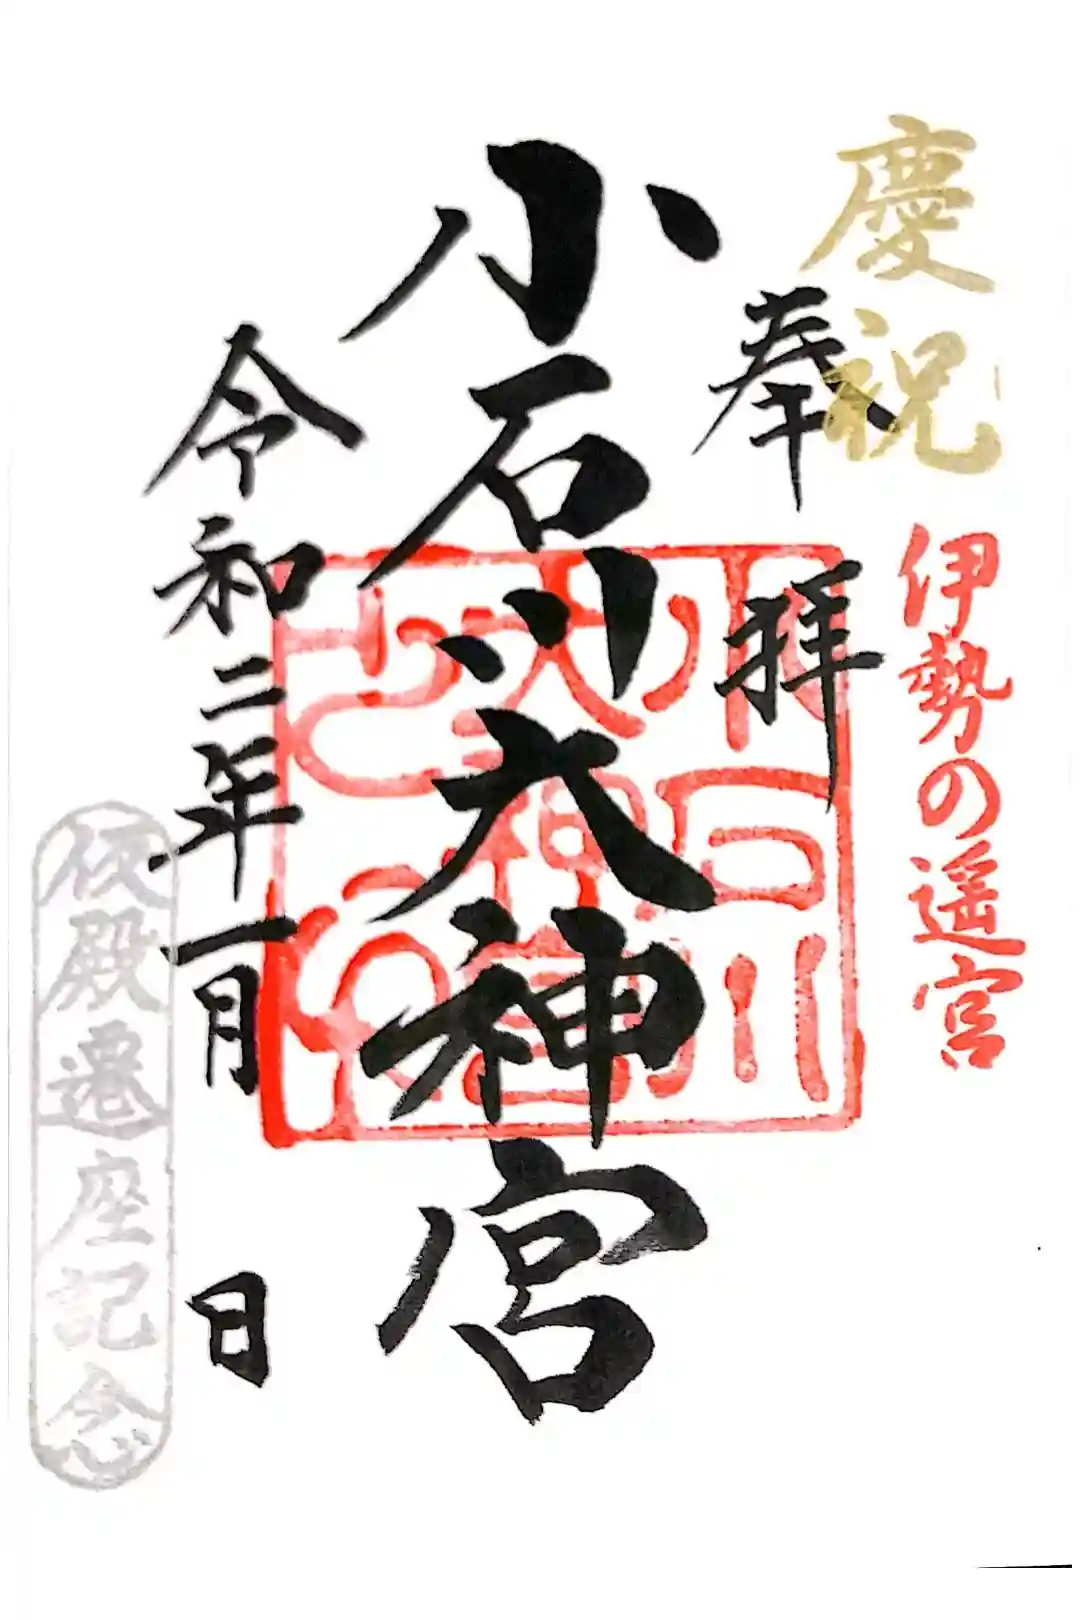 慶祝
伊勢の遥宮
奉拝
小石川大神宮
令和二年一月 日
仮殿遷座記念